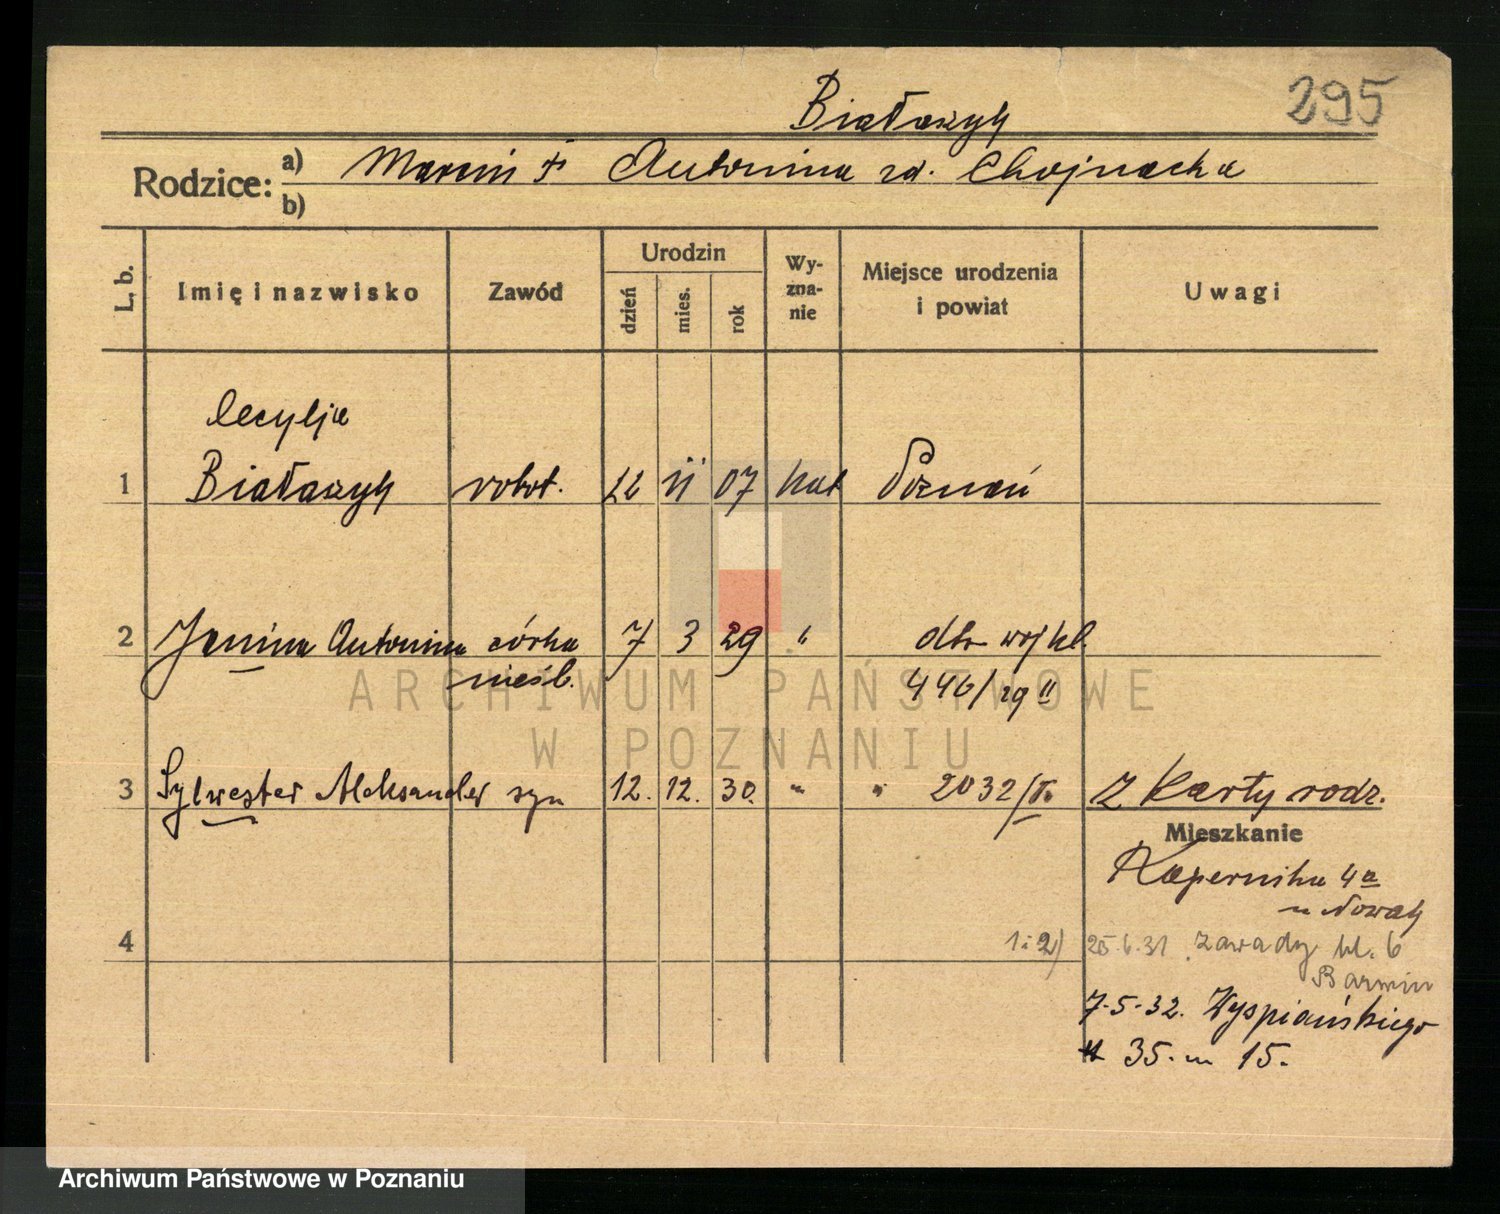 295
Białaszyk
Rodzice: a) Marcin † Antonina zd. Chojnacka
b)
L. b. Imię i nazwisko Zawód Urodzin dzień mies. rok Wy-zna-nie Miejsce urodzenia i powiat Uwagi
Cecylja
1 Białaszyk robot. 22 11 07 kat Poznań
2 Janina Antonina córka 7 3 29 " dto
nieśl. 446/29 II
3 Sylwester Aleksander syn 12. 12. 30. " " 2032/ Z karty rodz.
Mieszkanie
Kopernika 4a
u Nowak
4 1 i 2) 25.6.31 Zawady
Barmin
7.5.32. Wyspiańskiego
35. m 15.
ARCHIWUM PAŃSTWOWE
W POZNANIU
Archiwum Państwowe w Poznaniu